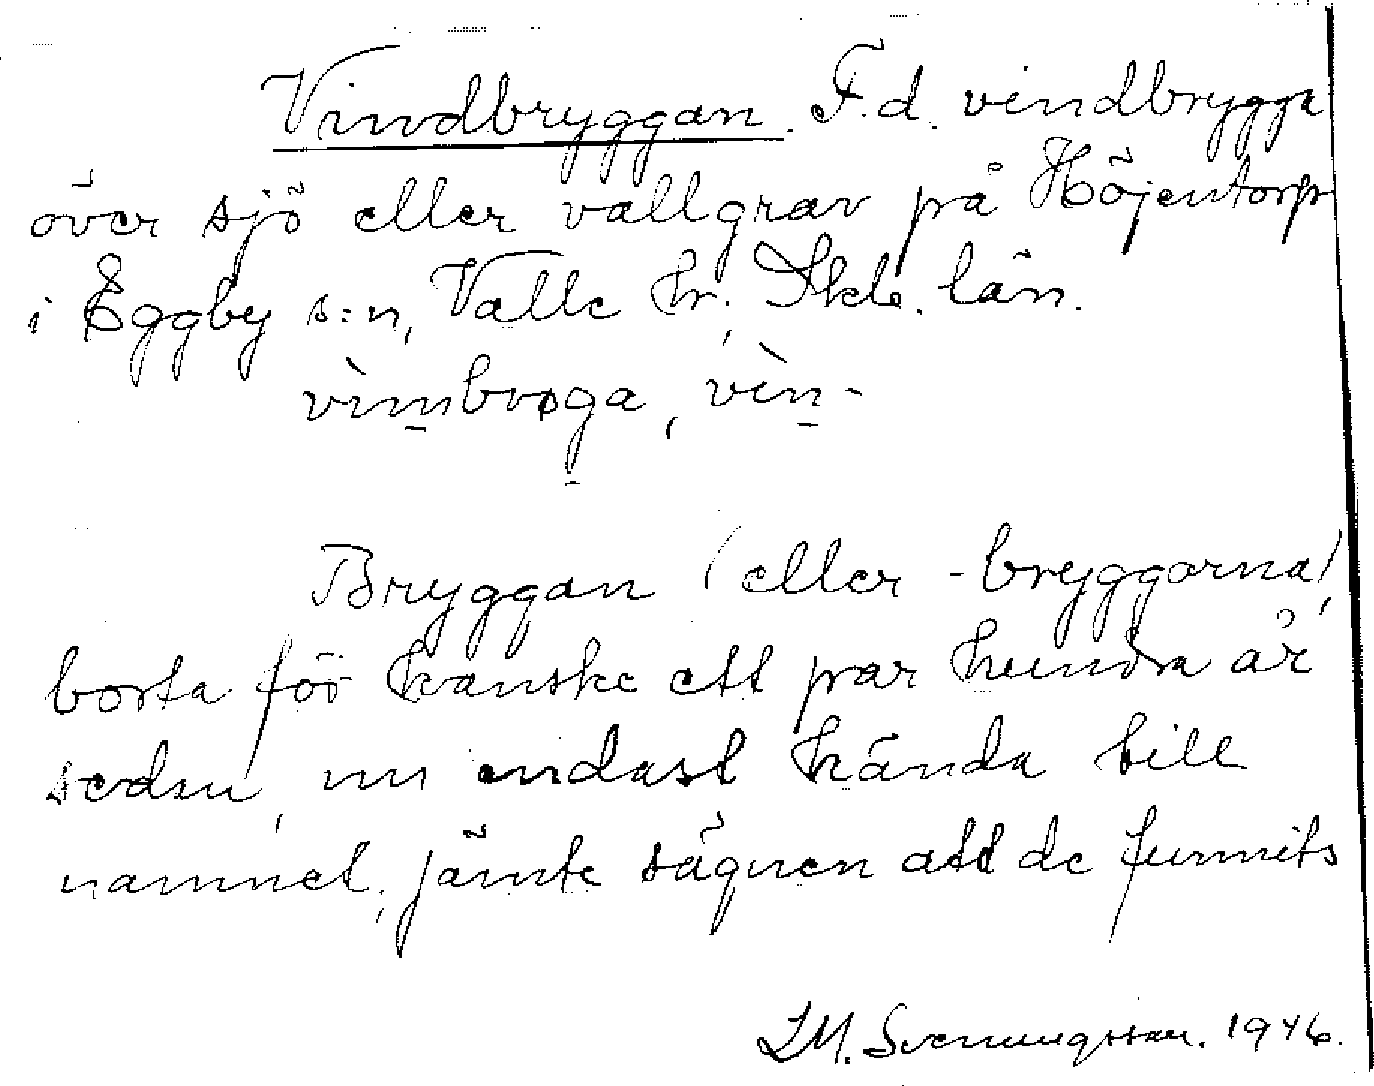 Vindbryggan. F.d. vindbrygga
över sjö eller vallgrav på Höjentorp
i Eggby s:n, Valle hr, Skb. län.
vìmbrøga, vìn-
Bryggan (eller -bryggorna)
borta för kanske ett par hundra år
sedan, nu endast kända till
namnet, jämte sägnen att de funnits
LM. Svenungsson. 1946.